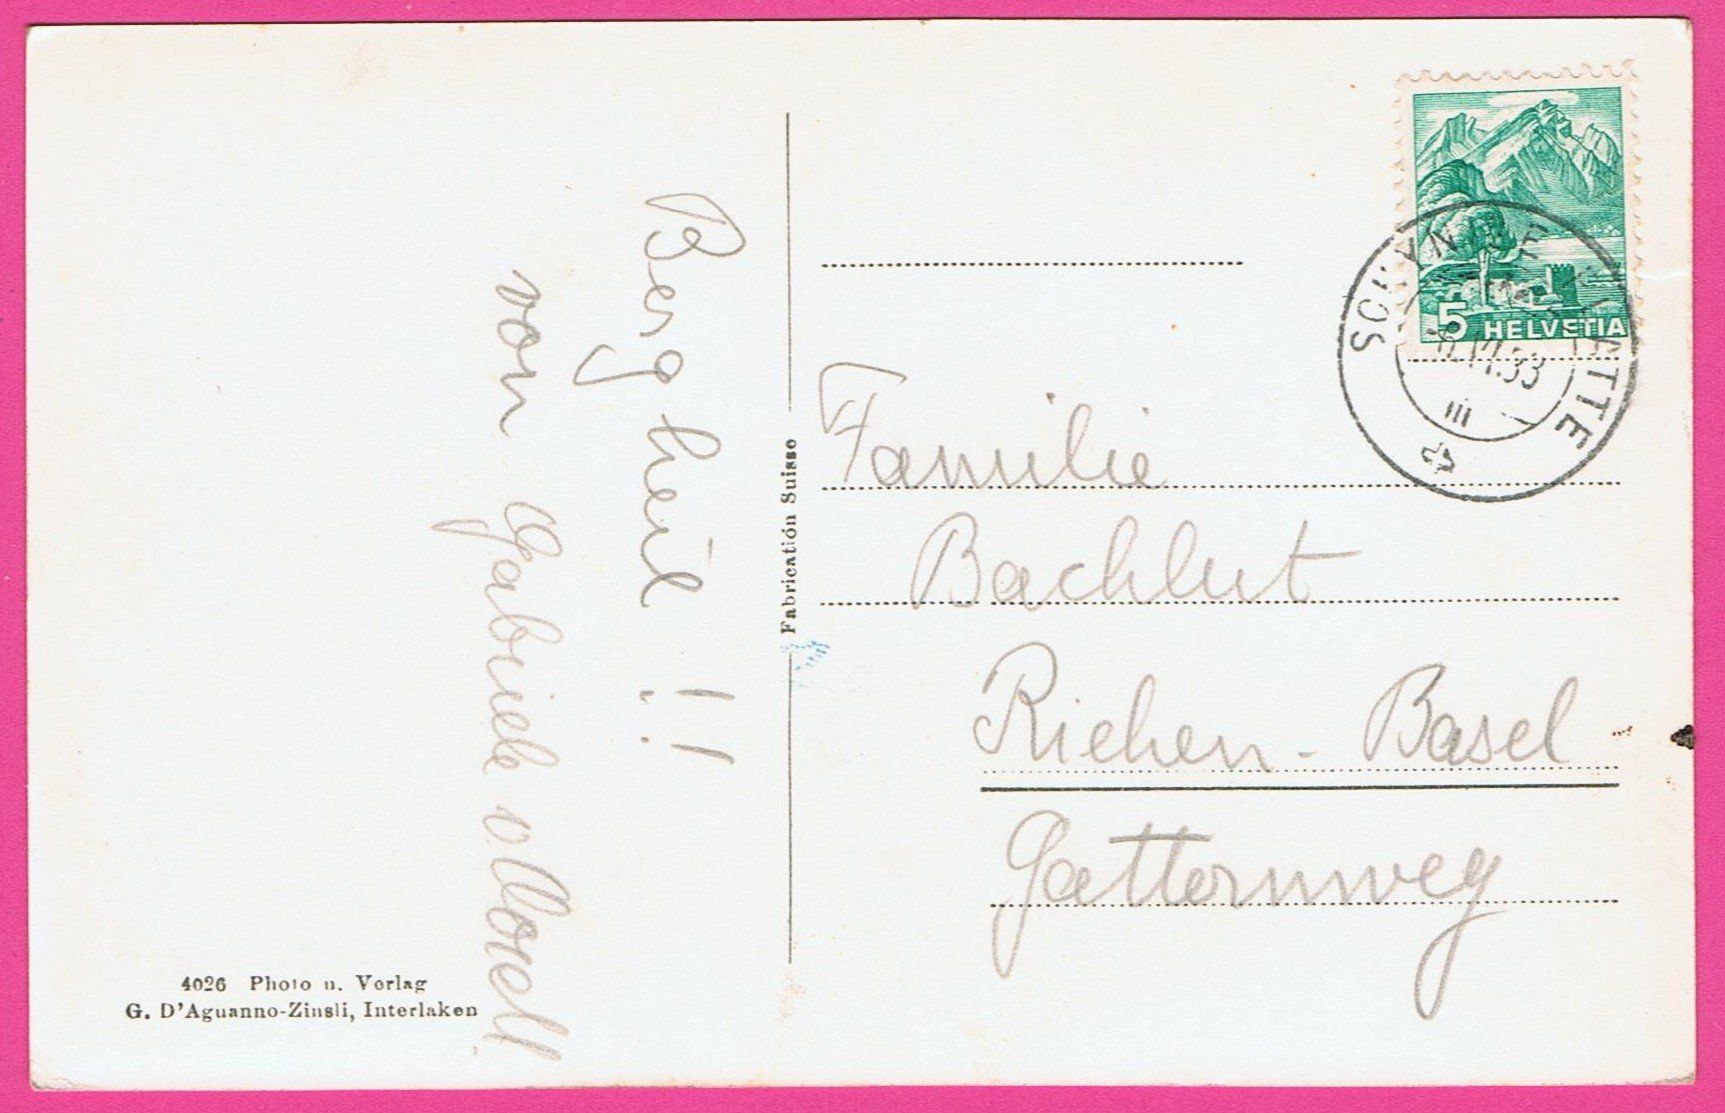 Berg heil !!
von Gabriele u.
4026 Photo u. Verlag
G. D'Aguanno-Zinsli, Interlaken
Fabrication Suisse
5 HELVETIA
SCHYNIGE PLATTE
III
Familie
Bachlut
Riehen - Basel
Gatternweg